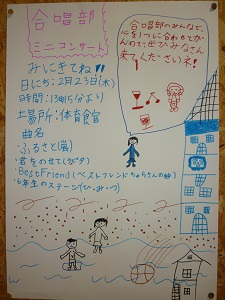 合唱部
ミニコンサート
みにきてね!!
日にち:2月23日(木)
時間:13時15分より
場所:体育食官
曲名
・ふるさと(嵐)
・君をのせて(ラピュタ)
・BestFriend(ベストフレンドちゅらさんの曲)
・6年生のステージ(ひ・み・つ)
合唱部のみんなで、
心を1つに合わせてが
んばるので、ぜひみなさん
来てくださいネ!